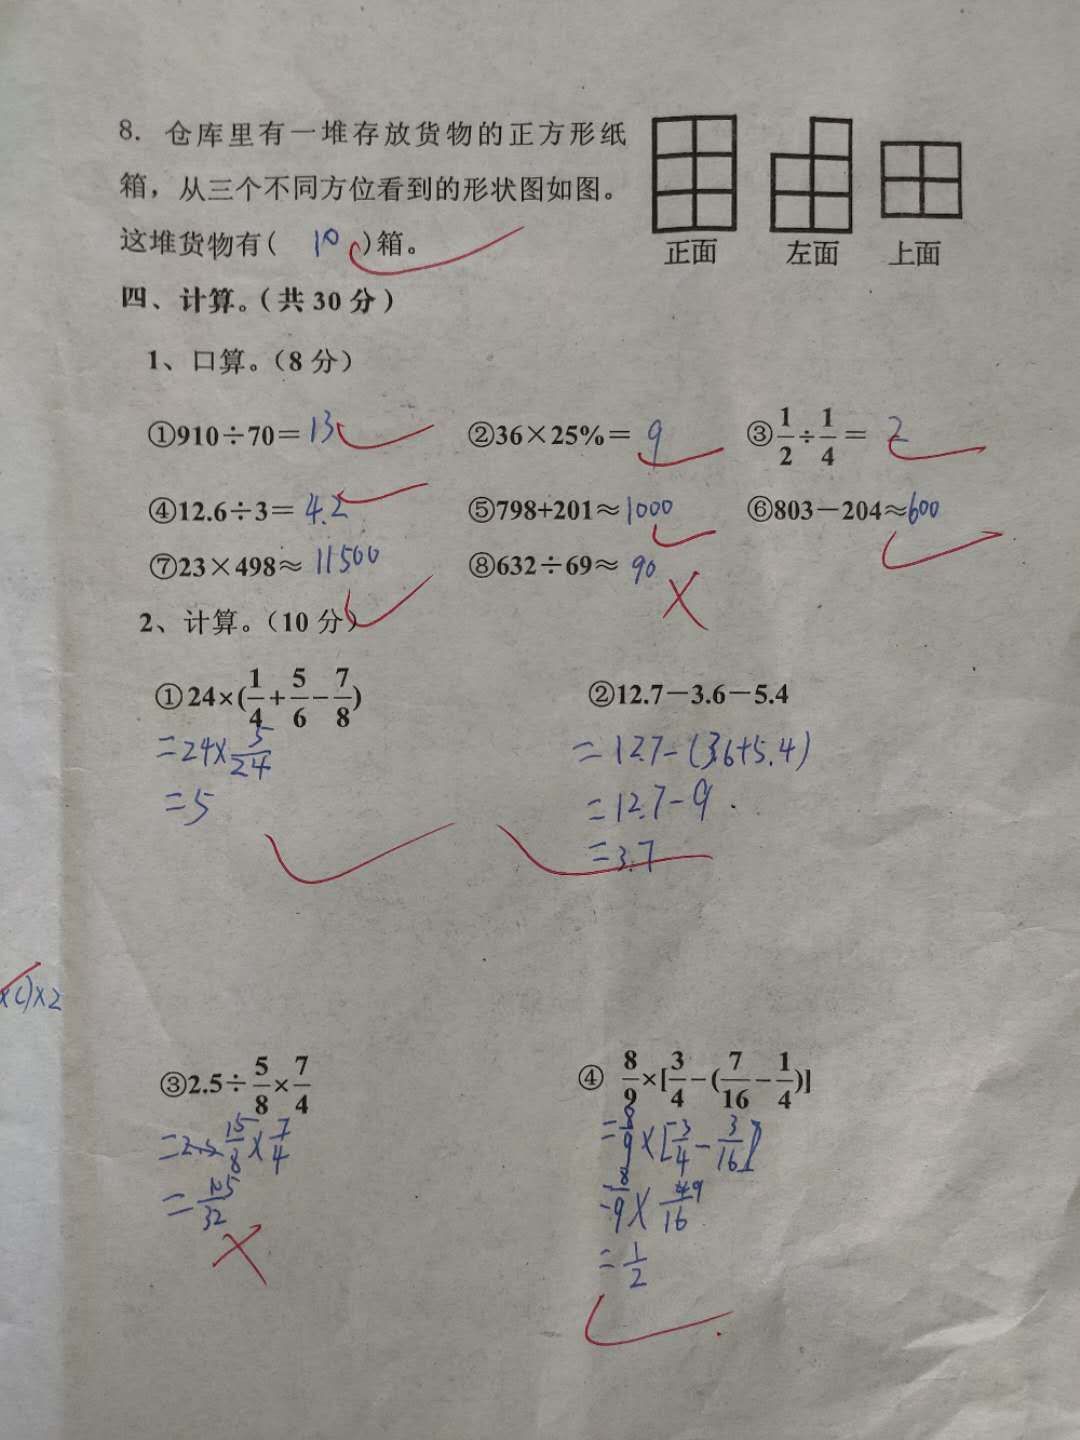 8. 仓库里有一堆存放货物的正方形纸
箱，从三个不同方位看到的形状图如图。
这堆货物有( 10 )箱。
正面 左面 上面
四、计算。(共 30 分)
1、口算。(8 分)
①910÷70= 13 ②36×25%= 9 ③1/2÷1/4= 2
④12.6÷3= 4.2 ⑤798+201≈1000 ⑥803-204≈600
⑦23×498≈ 11500 ⑧632÷69≈ 90
2、计算。(10 分)
①24×(1/4+5/6-7/8) ②12.7-3.6-5.4
=24×5/24 =12.7-(3.6+5.4)
=5 =12.7-9
=3.7
×2
③2.5÷5/8×7/4 ④ 8/9×[3/4-(7/16-1/4)]
15/8×7/4 =8/9×[3/4-3/16]
=8/9×9/16
=1/2